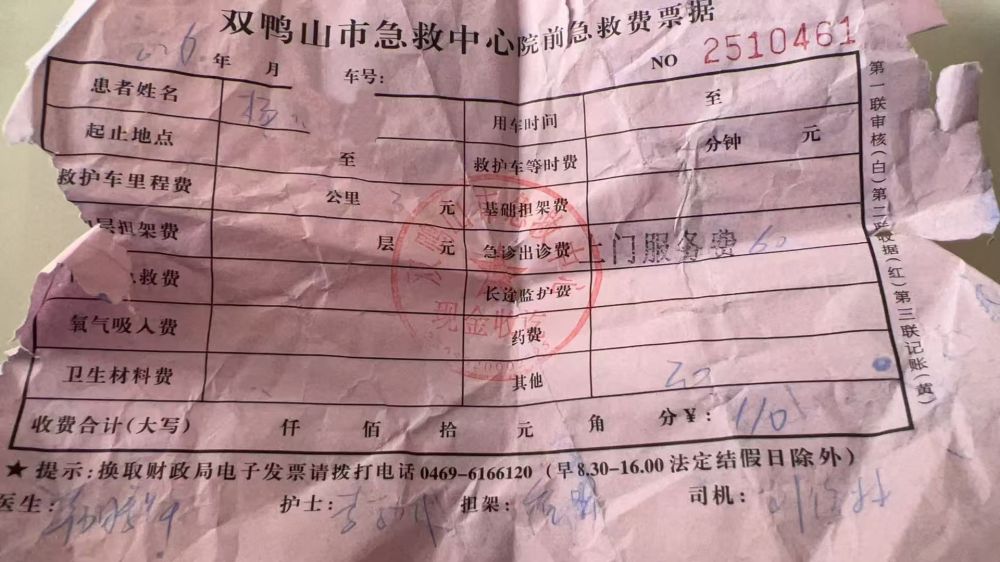 双鸭山市急救中心院前急救费票据
年 月 车号: NO 2510461
患者姓名 杨 用车时间 至
起止地点 至 救护车等时费 分钟 元
救护车里程费 公里 元 基础担架费
层担架费 层 元 急诊出诊费 上门服务费 60
急救费 长途监护费
氧气吸入费 药费
卫生材料费 其他
收费合计(大写) 仟 佰 拾 元 角 分¥: 110
★ 提示:换取财政局电子发票请拨打电话 0469-6166120 (早8.30-16.00 法定结假日除外)
医生: 护士: 担架: 司机:
第一联审核(白)第二联收据(红)第三联记账(黄)
现金收讫